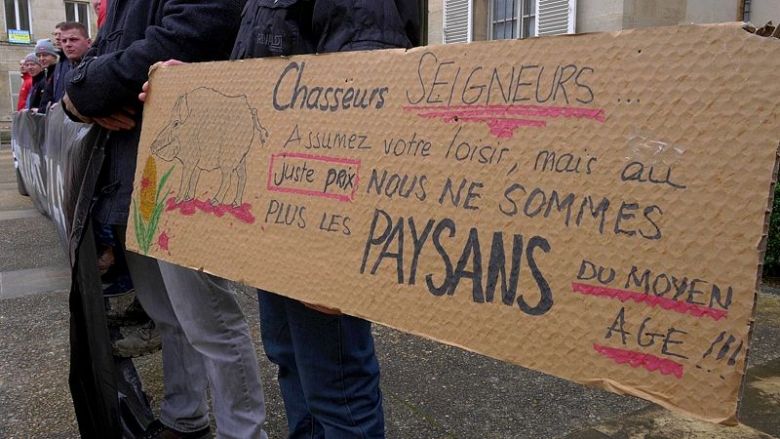 Chasseurs SEIGNEURS ...
Assumez votre loisir, mais au
juste prix NOUS NE SOMMES
PLUS LES PAYSANS DU MOYEN
AGE !!!